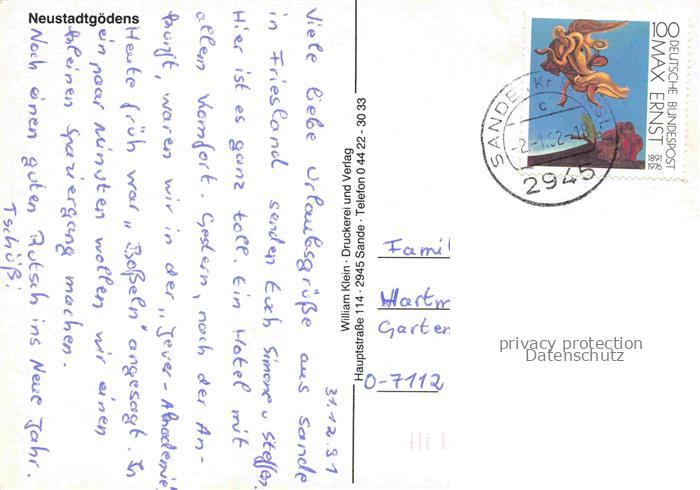 Neustadtgödens
31.12.91
Viele liebe Urlaubsgrüße aus Sande
in Friesland senden Euch Simone u Steffen.
Hier ist es ganz toll. Ein Hotel mit
allem Komfort. Gestern, nach der An-
kunft, waren wir in der „Jever-Akademie".
Heute früh war „Boßeln" angesagt. In
ein paar Minuten wollen wir einen
kleinen Spaziergang machen.
Noch einen guten Rutsch ins Neue Jahr.
Tschüß!
William Klein · Druckerei und Verlag
Hauptstraße 114 · 2945 Sande · Telefon 0 44 22 - 30 33
100 DEUTSCHE BUNDESPOST
MAX ERNST 1891 1976
SANDE, Kr
c
2945
Famil
Hartm
Garten
O-7112
privacy protection
Datenschutz